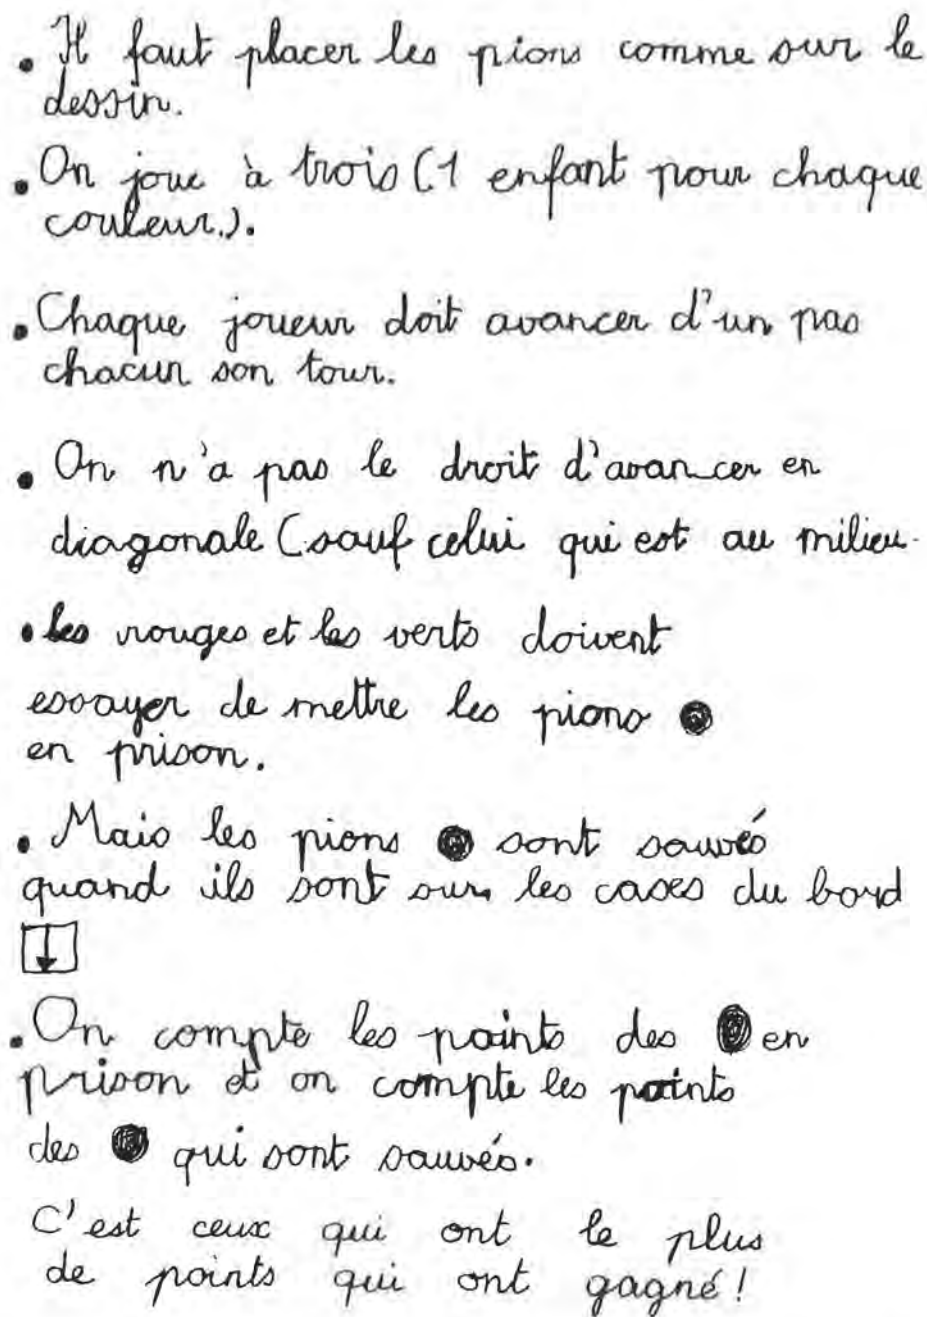 . Il faut placer les pions comme sur le
dessin.
. On joue à trois (1 enfant pour chaque
couleur.).
. Chaque joueur doit avancer d'un pas
chacun son tour.
. On n'a pas le droit d'avancer en
diagonale (sauf celui qui est au milieu.
. les rouges et les verts doivent
essayer de mettre les pions ●
en prison.
. Mais les pions ● sont sauvés
quand ils sont sur les cases du bord
↓
. On compte les points des ● en
prison et on compte les points
des ● qui sont sauvés.
C'est ceux qui ont le plus
de points qui ont gagné !